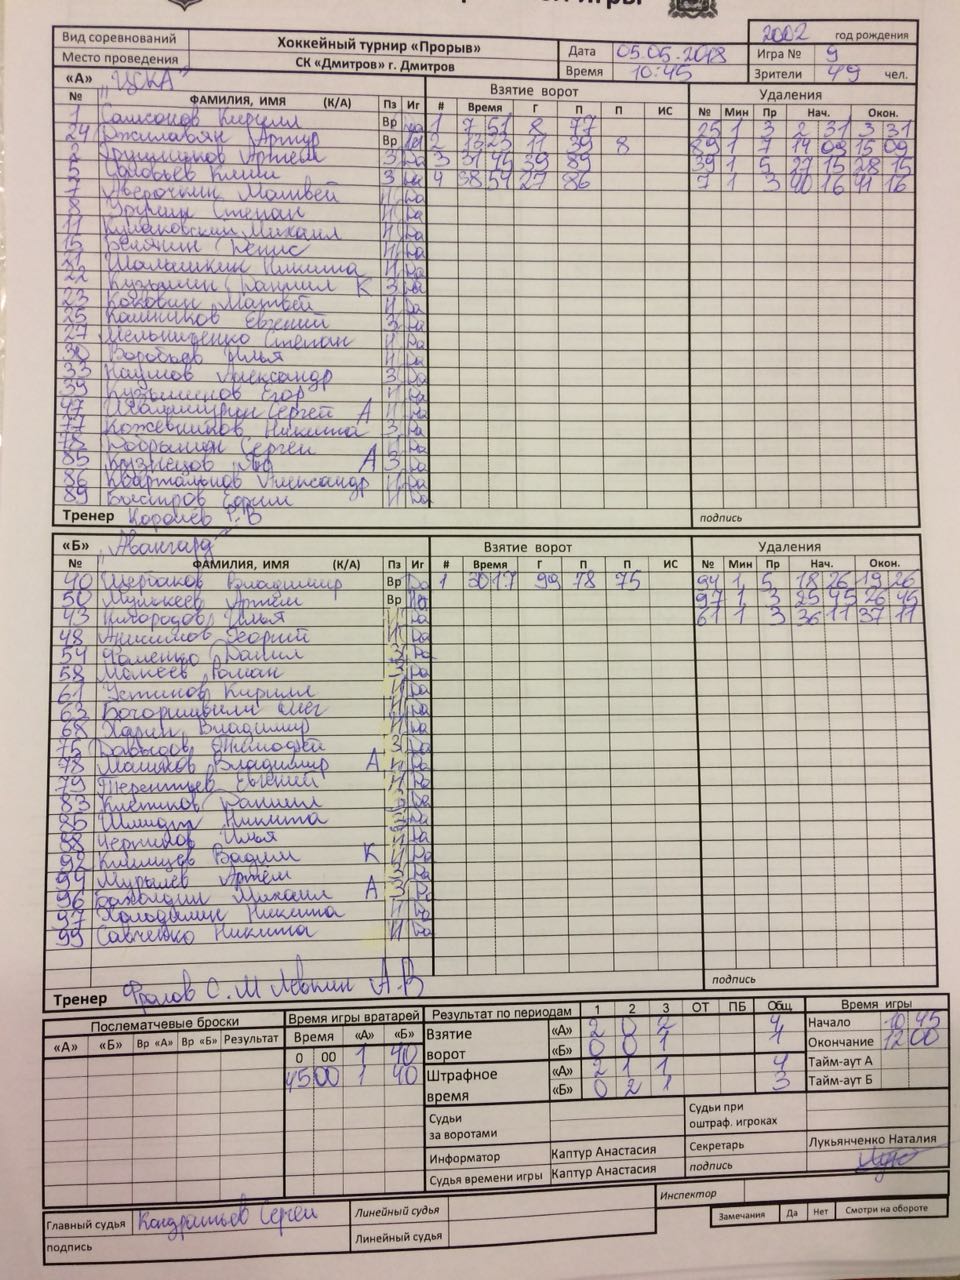 2002 год рождения
Вид соревнований Хоккейный турнир «Прорыв» Дата 05.05.2018 Игра № 9
Место проведения СК «Дмитров» г. Дмитров Время 10:45 Зрители 49 чел.
«А» "ЦСКА" Взятие ворот Удаления
№ ФАМИЛИЯ, ИМЯ (К/А) Пз Иг # Время Г П П ИС № Мин Пр Нач. Окон.
1 Самсонов Кирилл Вр Да 1 7 51 8 77 25 1 3 2 31 3 31
24 Артур Вр 2 11 39 8 89 1 7 14 09 15 09
2 Артём З Да 3 31 44 39 89 39 1 5 27 15 28 15
5 Соловьёв Клим З Да 4 38 54 27 86 7 1 3 40 16 41 16
7 Аверочкин Матвей Н Да
8 Степан Н Да
11 Михаил Н Да
15 Денис Н Да
21 Шалашкин Никита Н Да
22 Кузьмин Даниил К З Да
23 Коковин Матвей Н Да
25 Калинников Евгений З Да
27 Мельниченко Степан Н Да
30 Воробьев Илья Н Да
33 Наумов Александр З Да
39 Кузьминов Егор Н Да
47 Сергей А Н Да
77 Кожевников Никита З Да
78 Добрынин Сергей Н Да
85 Кузнецов А З Да
86 Квартальнов Александр Н Да
89 Быстров Ефрим Н Да
Тренер Королёв Р.В подпись
«Б» "Авангард" Взятие ворот Удаления
№ ФАМИЛИЯ, ИМЯ (К/А) Пз Иг # Время Г П П ИС № Мин Пр Нач. Окон.
40 Щербаков Владимир Вр Да 1 30 17 99 78 75 94 1 5 18 26 19 26
50 Артём Вр Да 97 1 3 25 45 26 45
43 Илья Н Да 61 1 3 36 11 37 11
48 Анисимов Георгий Н Да
54 Фоменко Данил З Да
58 Мокеев Роман З Да
61 Устинов Кирилл Н Да
63 Олег Н Да
68 Харин Владимир Н Да
75 Давыдов Тимофей З Да
78 Машков Владимир А Н Да
79 Терентьев Евгений Н Да
83 Даниил З Да
86 Шмидт Никита З Да
88 Илья Н Да
92 Вадим К Н Да
94 Артём З Да
96 Бахолдин Михаил А З Да
97 Холодилин Никита Н Да
99 Савченко Никита Н Да
Тренер Фролов С.М Левкин А.В подпись
Послематчевые броски Время игры вратарей Результат по периодам 1 2 3 ОТ ПБ Общ. Время игры
«А» «Б» Вр «А» Вр «Б» Результат Время «А» «Б» Взятие ворот «А» 2 0 2 4 Начало 10 45
0 00 1 40 «Б» 0 0 1 1 Окончание 12 00
45 00 1 40 Штрафное время «А» 2 1 1 4 Тайм-аут А
«Б» 0 2 1 3 Тайм-аут Б
Судьи за воротами Судьи при оштраф. игроках
Информатор Каптур Анастасия Секретарь Лукьянченко Наталия
Судья времени игры Каптур Анастасия подпись
Главный судья Кондратьев Сергей Линейный судья Инспектор
подпись Линейный судья Замечания Да Нет Смотри на обороте